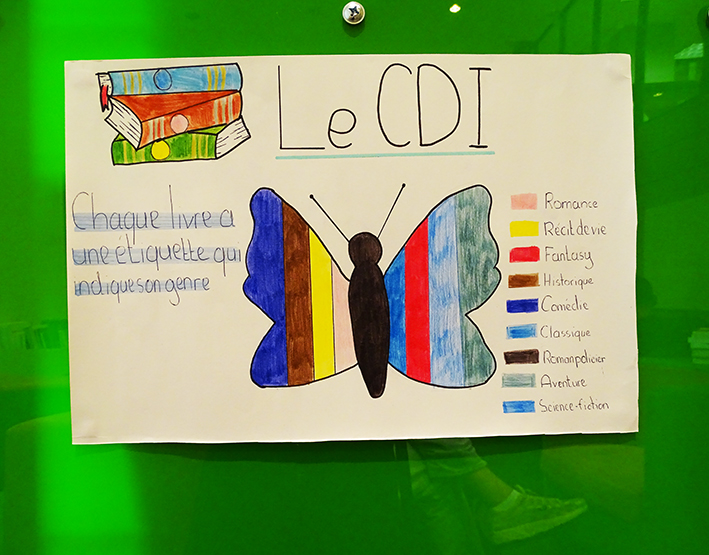 Le CDI
Chaque livre a
une étiquette qui
indique son genre
Romance
Récit de vie
Fantasy
Historique
Comédie
Classique
Roman policier
Aventure
Science-fiction